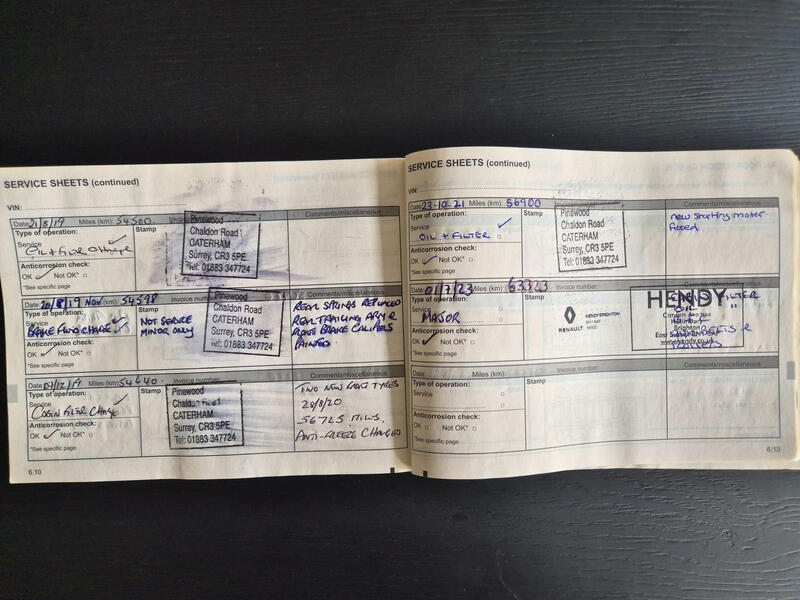 SERVICE SHEETS (continued)
VIN:
Date: 21/8/19 Miles (km): 54500
Type of operation: Stamp Comments/miscellaneous
Service
OIL + FILTER CHANGE
Anticorrosion check:
OK Not OK*
*See specific page
Pinewood
Chaldon Road
CATERHAM
Surrey, CR3 5PE
Tel: 01883 347724
Date: 20/8/19 Miles (km): 54598 Invoice number: Comments/miscellaneous
Type of operation: Stamp
Service
BRAKE FLUID CHANGE
NOT SERVICE
MINOR ONLY
Anticorrosion check:
OK Not OK*
*See specific page
Pinewood
Chaldon Road
CATERHAM
Surrey, CR3 5PE
Tel: 01883 347724
REAR SPRINGS REPLACED
REAR TRAILING ARM &
BRAKE CALIPERS
PAINTED.
Date: 07/12/19 Miles (km): 54640 Invoice number: Comments/miscellaneous
Type of operation: Stamp
Service
CABIN FILTER CHANGE
Anticorrosion check:
OK Not OK*
*See specific page
Pinewood
Chaldon Road
CATERHAM
Surrey, CR3 5PE
Tel: 01883 347724
TWO NEW TYRES
28/8/20
56725 MILES.
ANTI-FREEZE CHANGED
6.10
SERVICE SHEETS (continued)
VIN:
Date: 23-10-21 Miles (km): 56900 Comments/miscellaneous
Type of operation: Stamp
Service
OIL + FILTER
Anticorrosion check:
OK Not OK*
*See specific page
Pinewood
Chaldon Road
CATERHAM
Surrey, CR3 5PE
Tel: 01883 347724
New starting motor
fitted
Date: 01/7/23 Miles (km): 63323 Invoice number: Comments/miscellaneous
Type of operation: Stamp
Service
MAJOR
Anticorrosion check:
OK Not OK*
*See specific page
RENAULT
HENDY BRIGHTON
HENDY
FILTER
OIL "
Brighton
East Sussex
www.hendy.co.uk
Date: Miles (km): Invoice number: Comments/miscellaneous
Type of operation: Stamp
Service
Anticorrosion check:
OK Not OK*
*See specific page
6.13